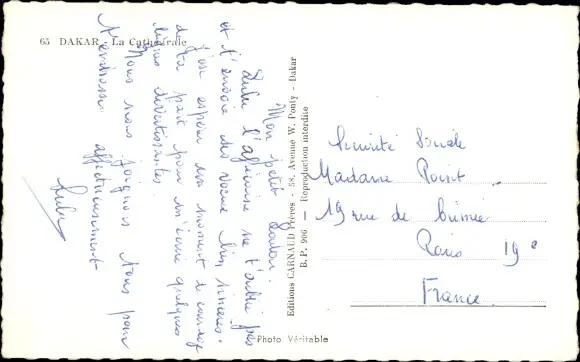 65 DAKAR - La Cathédrale
Mon petit Loulou.
Lulu l'africaine ne t'oublie pas
et t'envoie des voeux bien sincères.
J'ose espérer un moment de courage
de ta part pour m'écrire quelques
lignes divertissantes
Nous nous joignons tous pour
t'embrasser affectueusement
Lulu
Editions CARNAUD Frères - 58, Avenue W. Ponty - Dakar
B. P. 906 - Reproduction interdite
Sécurité Sociale
Madame Poirit
19 rue de Crimée
Paris 19e
France
Photo Véritable